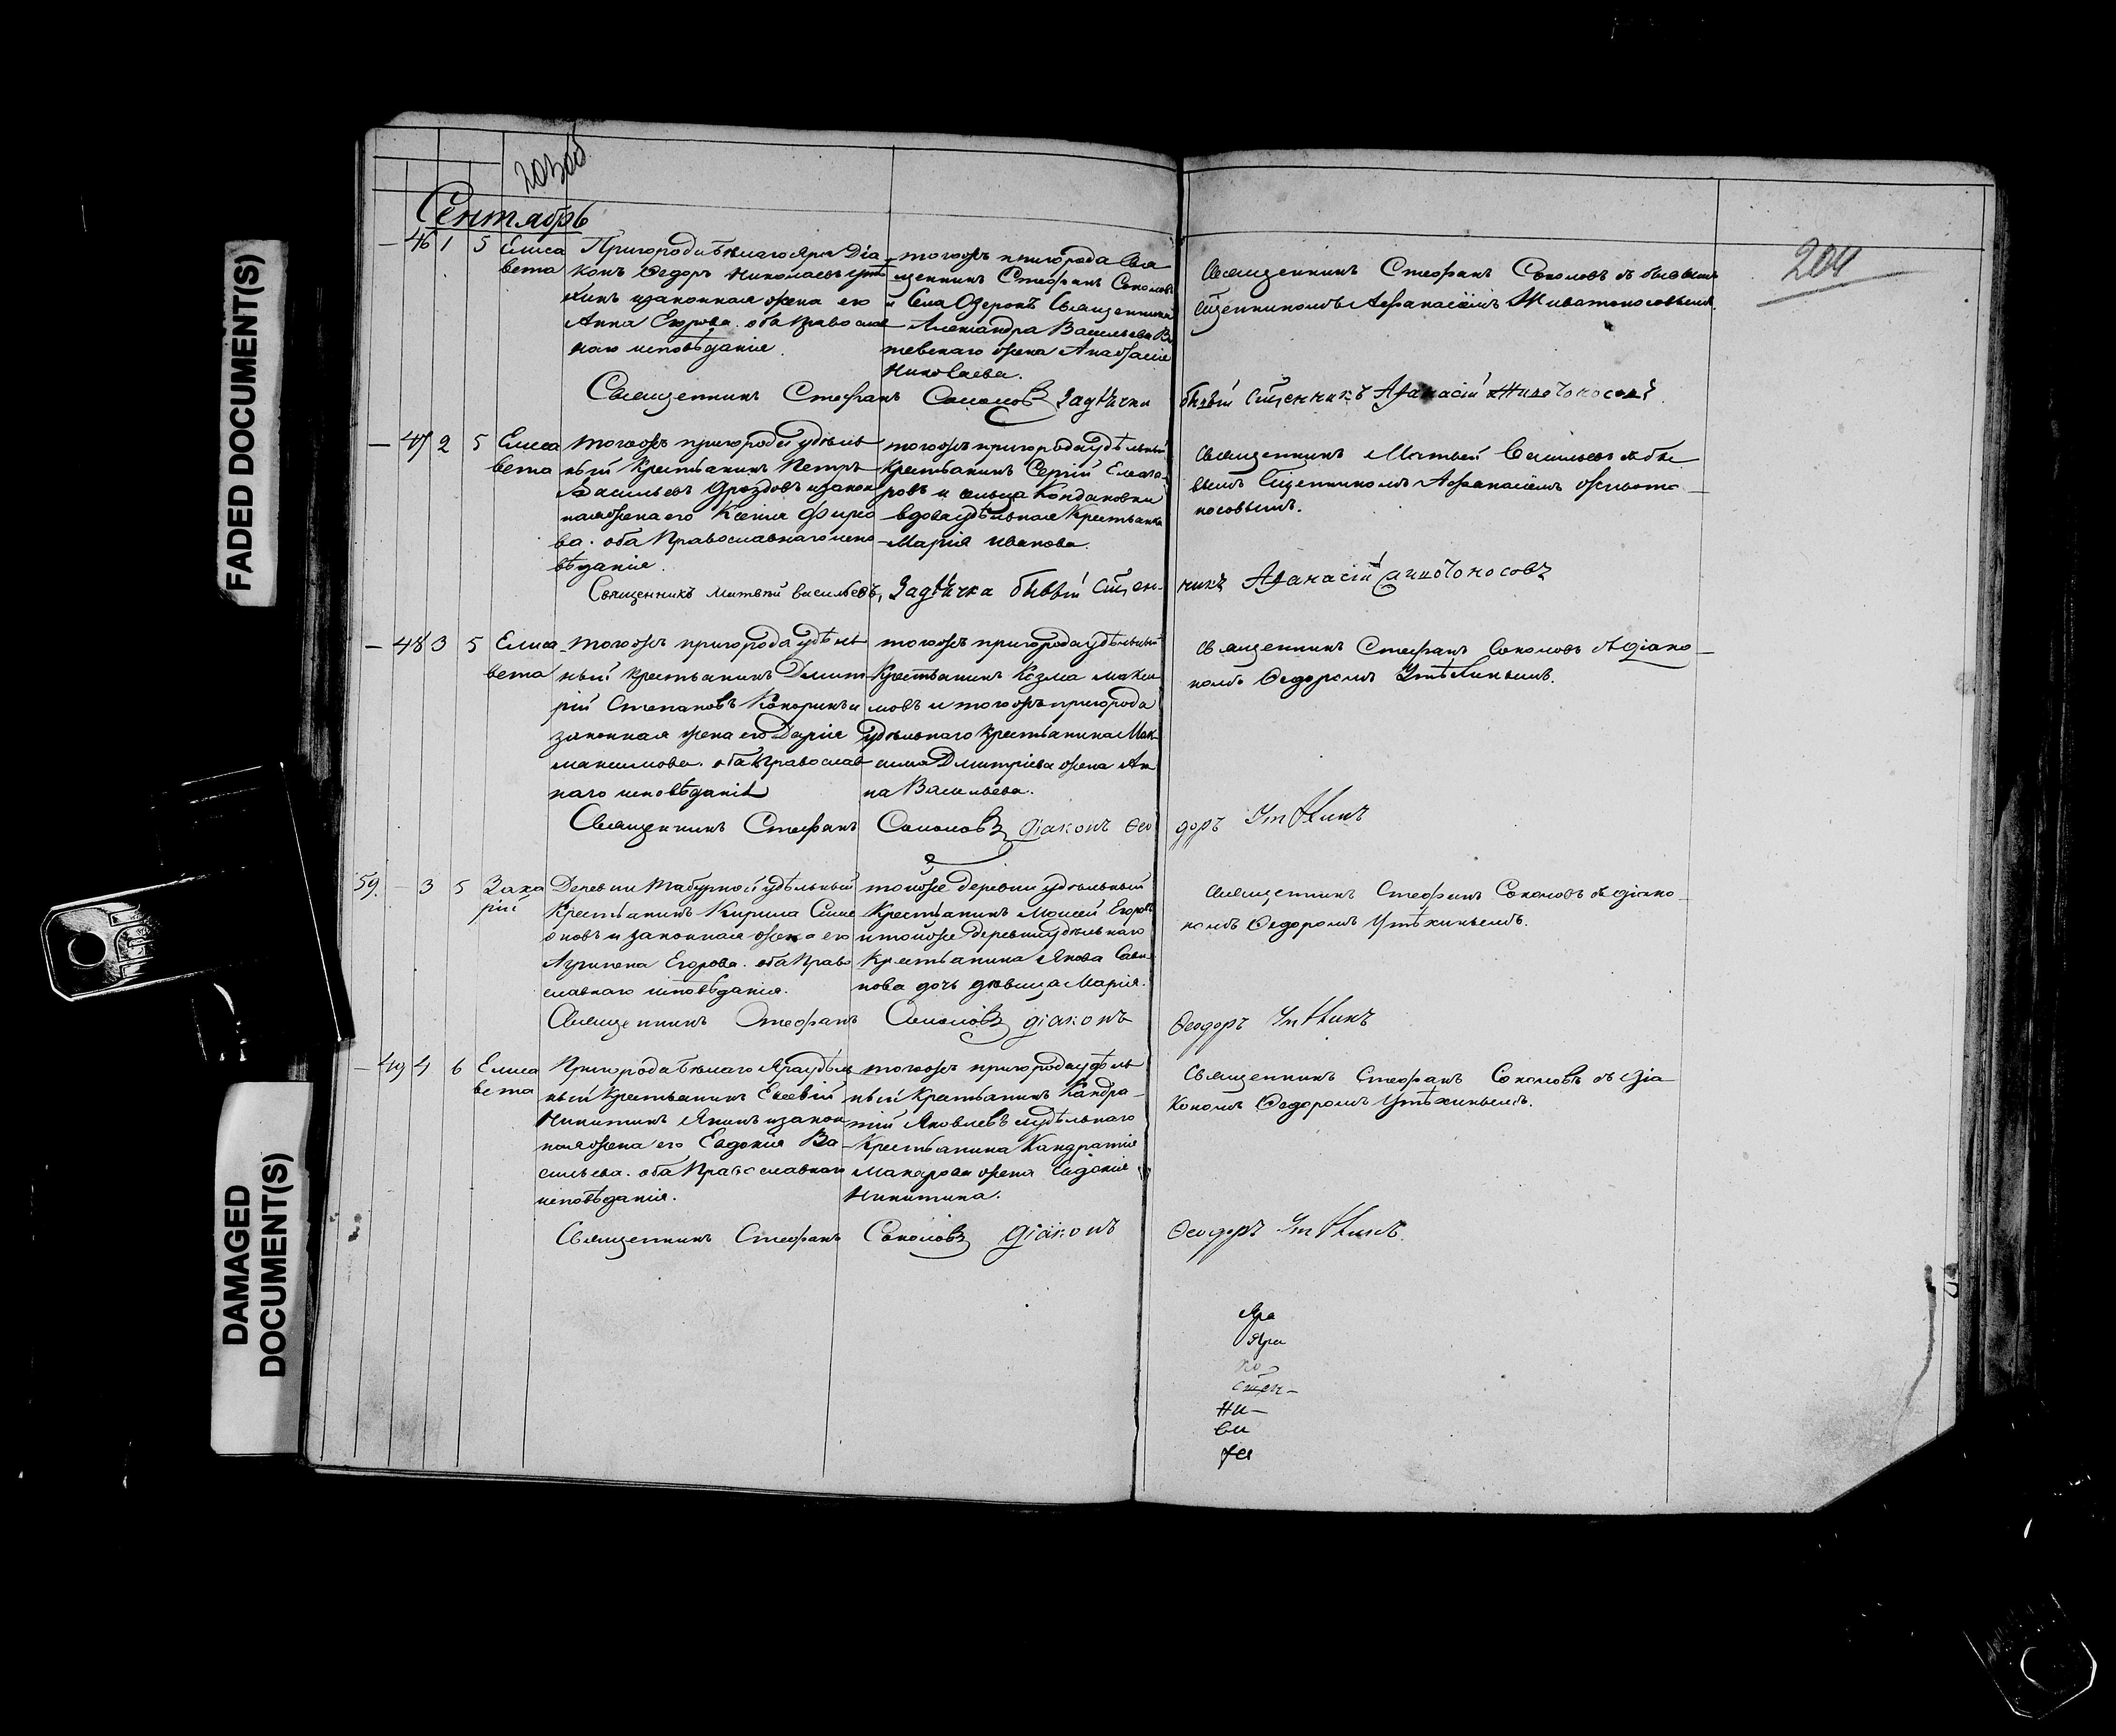 FADED DOCUMENT(S)
DAMAGED
DOCUMENT(S)
203об
204
Сентябрь
— 46 1 5 Елиса
вета
Пригорода Бѣлаго Яра Діа
конъ Ѳедоръ Николаевъ Утѣ
хинъ и законная жена его
Анна Егорова. оба православ
наго исповѣданія.
тогожъ пригорода Свя
щенникъ Стефанъ Соколовъ
и Села Озерокъ Священника
Александра Васильева
жена Анастасія
Николаева.
Священникъ Стефанъ Соколовъ съ бывшимъ
Сщенникомъ Аѳанасіемъ Животоносовымъ
Священникъ Стефанъ Соколовъ Задѣячка бывый Сщенникъ Аѳанасій Животоносовъ.
— 47 2 5 Елиса
вета
тогожъ пригорода удѣль
ный Крестьянинъ Петръ
Васильевъ Дроздовъ и закон
ная жена его Ксенія Фирсо
ва. оба Православнаго испо
вѣданія.
тогожъ пригорода удѣльный
Крестьянинъ Сергій Елиза
ровъ и сельца Кондаковки
вдова удѣльная Крестьянка
Марія Иванова.
Священникъ Матвей Васильевъ съ бы
вымъ Сщенникомъ Аѳанасіемъ Живото
носовымъ.
Священникъ Матвей Васильевъ, Задѣячка бывый Сщенникъ Аѳанасій Животоносовъ
— 48 3 5 Елиса
вета
тогожъ пригорода удѣль
ный крестьянинъ Димит
рій Степановъ Кокоринъ и
законная жена его Дарія
Максимова. оба Православ
наго исповѣданія
тогожъ пригорода удѣльный
Крестьянинъ Козма Макси
мовъ и тогожъ пригорода
удѣльнаго крестьянина Мак
сима Димитріева жена Ан
на Васильева.
Священникъ Стефанъ Соколовъ съ діако
номъ Ѳедоромъ Утѣхинымъ.
Священникъ Стефанъ Соколовъ діаконъ Ѳеодоръ Утѣхинъ
59. — 3 5 Заха
рій
Деревни Табурной удѣльный
Крестьянинъ Кирила Симе
оновъ и законная жена его
Агрипена Егорова. оба Право
славнаго исповѣданія.
тойже деревни удѣльный
Крестьянинъ Моисей Егоровъ
и тойже деревни удѣльнаго
Крестьянина Якова Сави
нова дочь дѣвица Марія.
Священникъ Стефанъ Соколовъ съ діако
номъ Ѳедоромъ Утѣхинымъ.
Священникъ Стефанъ Соколовъ діаконъ Ѳеодоръ Утѣхинъ
— 49 4 6 Елиса
вета
Пригорода Бѣлаго Яра удѣль
ный Крестьянинъ Евсевій
Никитинъ Якинъ и закон
ная жена его Евдокія Ва
сильева. оба Православнаго
исповѣданія.
тогожъ пригорода удѣль
ный Крестьянинъ Кандра
тій Яковлевъ и удѣльнаго
Крестьянина Кандратія
Макарова жена Евдокія
Никитина.
Священникъ Стефанъ Соколовъ съ діа
кономъ Ѳедоромъ Утѣхинымъ.
Священникъ Стефанъ Соколовъ діаконъ Ѳеодоръ Утѣхинъ.
Яра
Яра
хо
сщен—
Ни—
ви